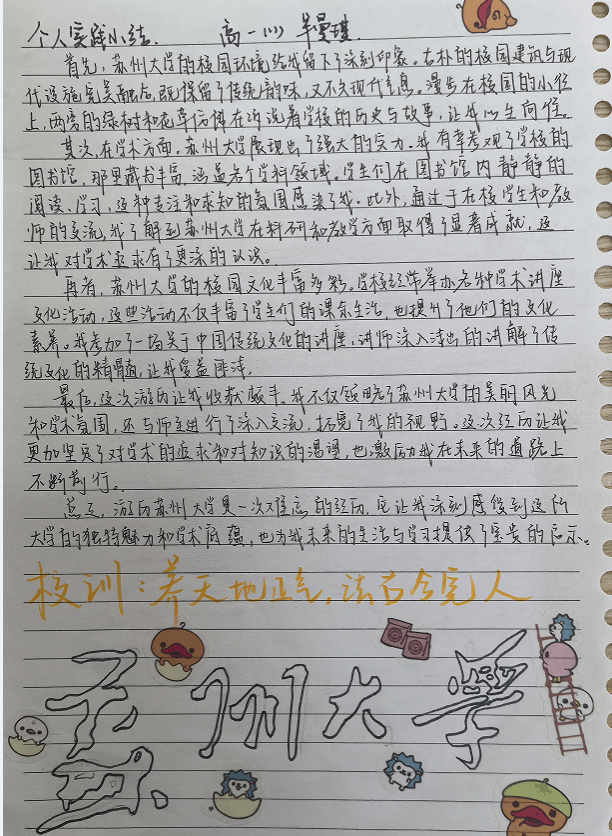 个人实践小结. 高一(1) 羊曼琪.
首先,苏州大学的校园环境给我留下了深刻印象。古朴的校园建筑与现
代设施完美融合,既保留了传统韵味,又不失现代气息。漫步在校园的小径
上,两旁的绿树和花草仿佛在诉说着学校的历史与故事,让我心生向往。
其次,在学术方面,苏州大学展现出了强大的实力。我有幸参观了学校的
图书馆,那里藏书丰富,涵盖各个学科领域。学生们在图书馆内静静的
阅读、学习,这种专注和求知的氛围感染了我。此外,通过于在校学生和教
师的交流,我了解到苏州大学在科研和教学方面取得了显著成就,这
让我对学术追求有了更深的认识。
再者,苏州大学的校园文化丰富多彩。学校经常举办各种学术讲座
文化活动,这些活动不仅丰富了学生们的课余生活,也提升了他们的文化
素养。我参加了一场关于中国传统文化的讲座,讲师深入浅出的讲解了传
统文化的精髓,让我受益匪浅。
最后,这次游历让我收获颇丰。我不仅领略了苏州大学的美丽风光
和学术氛围,还与师生进行了深入交流,拓宽了我的视野。这次经历让我
更加坚定了对学术的追求和对知识的渴望,也激励我在未来的道路上
不断前行。
总之,游历苏州大学是一次难忘的经历,它让我深刻感受到这所
大学的独特魅力和学术底蕴,也为我未来的生活与学习提供了宝贵的启示。
校训:养天地正气,法古今完人
州大學